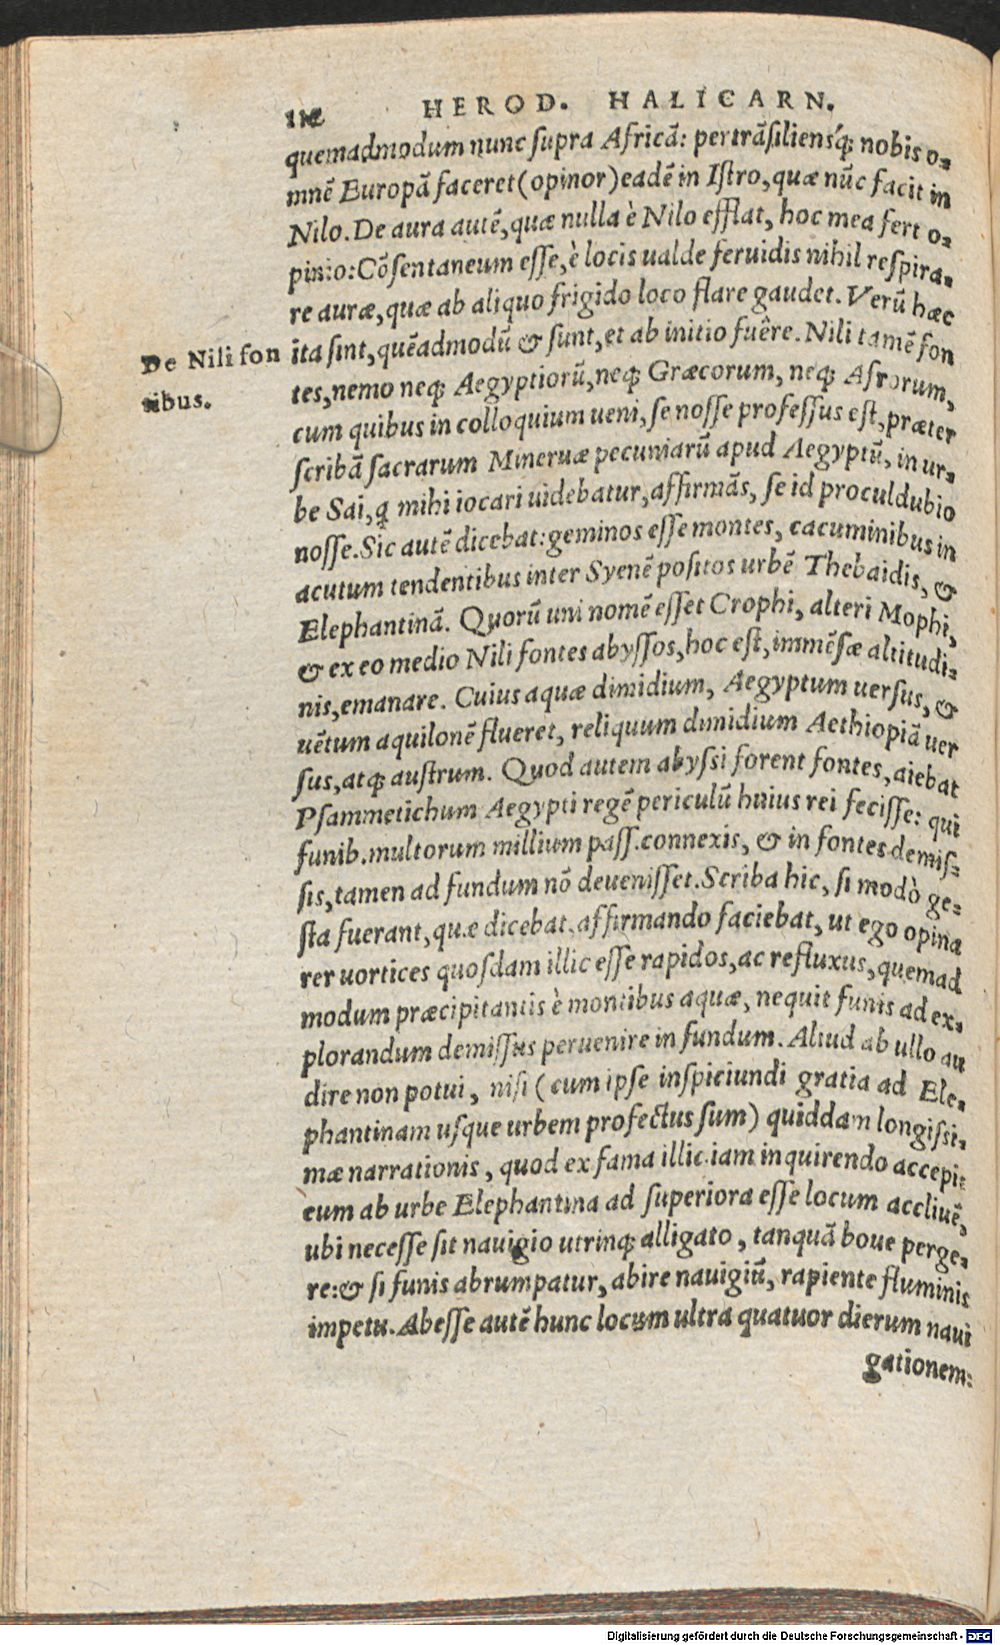 112 HEROD. HALICARN.
quemadmodum nunc ſupra Africã: pertrãſiliensq́; nobis o⸗
mnẽ Europã faceret (opinor) eadẽ in Iſtro, quæ nũc facit in
Nilo. De aura autẽ, quæ nulla è Nilo efflat, hoc mea fert o⸗
pinio: Cõſentaneum eſſe, è locis ualde feruidis nihil reſpira⸗
re auræ, quæ ab aliquo frigido loco flare gaudet. Verũ hæc
De Nili fon
tibus.
ita ſint, quẽadmodũ & ſunt, et ab initio fuêre. Nili tamẽ fon
tes, nemo neq; Aegyptiorũ, neq; Græcorum, neq; Afrorum,
cum quibus in colloquium ueni, ſe noſſe profeſſus eſt, præter
ſcribã ſacrarum Mineruæ pecuniarũ apud Aegyptũ, in ur⸗
be Sai, q̃ mihi iocari uidebatur, affirmãs, ſe id proculdubio
noſſe. Sic autẽ dicebat: geminos eſſe montes, cacuminibus in
acutum tendentibus inter Syenẽ poſitos urbẽ Thebaidis, &
Elephantinã. Quorũ uni nomẽ eſſet Crophi, alteri Mophi,
& ex eo medio Nili fontes abyſſos, hoc eſt, immẽſæ altitudi⸗
nis, emanare. Cuius aquæ dimidium, Aegyptum uerſus, &
uẽtum aquilonẽ flueret, reliquum dimidium Aethiopiã uer
ſus, atq; auſtrum. Quod autem abyſsi forent fontes, aiebat
Pſammetichum Aegypti regẽ periculũ huius rei feciſſe: qui
funib. multorum millium paſſ. connexis, & in fontes demiſ⸗
ſis, tamen ad fundum nõ deueniſſet. Scriba hic, ſi modò ge⸗
ſta fuerant, quæ dicebat, affirmando faciebat, ut ego opina
rer uortices quoſdam illic eſſe rapidos, ac refluxus, quemad
modum præcipitantis è montibus aquæ, nequit funis ad ex⸗
plorandum demiſſus peruenire in fundum. Aliud ab ullo au
dire non potui, niſi (cum ipſe inſpiciundi gratia ad Ele⸗
phantinam uſque urbem profectus ſum) quiddam longiſsi⸗
mæ narrationis, quod ex fama illic iam inquirendo accepi:
eum ab urbe Elephantina ad ſuperiora eſſe locum accliuẽ,
ubi neceſſe ſit nauigio utrinq; alligato, tanquã boue perge⸗
re: & ſi funis abrumpatur, abire nauigiũ, rapiente fluminis
impetu. Abeſſe autẽ hunc locum ultra quatuor dierum naui
gationem:
Digitalisierung gefördert durch die Deutsche Forschungsgemeinschaft - DFG